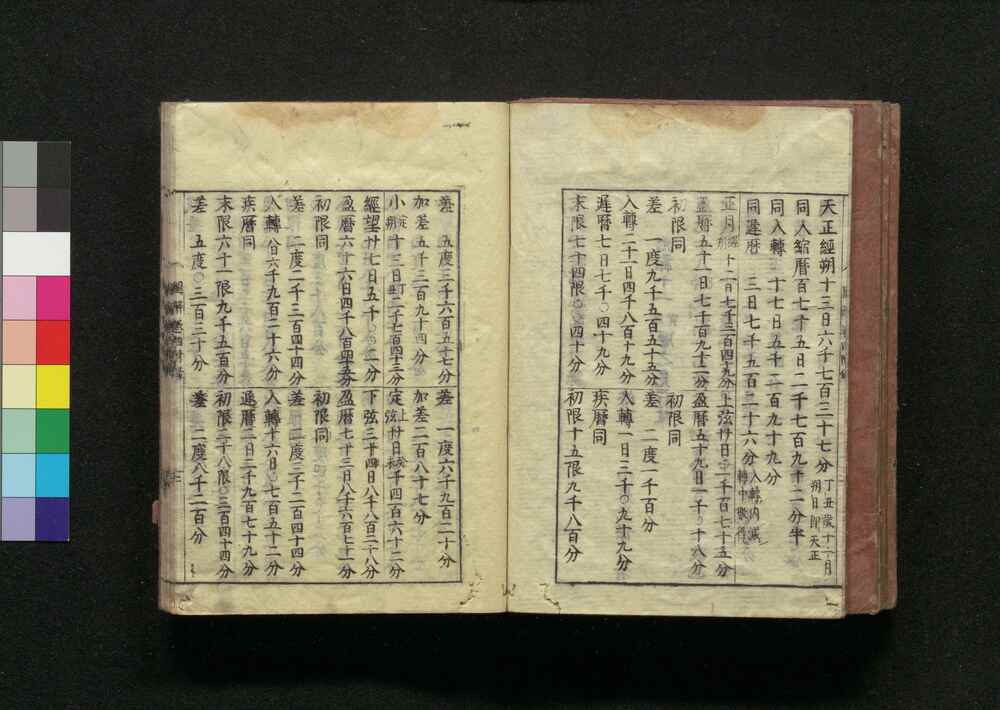 天正經朔十三日六千七百三十七分 丁丑歲十一月朔日即天正
同入縮曆百七十五日二千七百九十二分半
同入轉 十七日五千二百九十九分
同遲曆 三日七千五百二十六分 入轉內減轉中
正月經朔十二日七千三百四十九分 上弦廿日一千一百七十五分
盈曆五十一日七千百九十二分 盈曆五十九日一千〇十八分
初限同 初限同
差 一度九千五百五十五分 差 二度一千百分
入轉二十一日四千八百十九分 入轉一日三千〇九十九分
遲曆七日七千〇四十九分 疾曆同
末限七十四限〇〇四十分 初限十五限九千八百分
差 五度三千六百五十七分 差 一度六千九百二十分
加差五千三百九十四分 加差二百八十七分
小定朔十三日二千七百四十三分 定上弦廿日千四百六十二分
經望廿七日五千〇〇二分 下弦三十四日八千八百二十八分
盈曆六十六日四千八百四十五分 盈曆七十三日八千六百七十一分
初限同 初限同
差 二度二千三百四十四分 差 二度三千二百四十四分
入轉 八日六千九百二十六分 入轉十六日〇七百五十二分
疾曆同 遲曆二日三千九百七十九分
末限六十一限九千五百分 初限二十八限〇三百四十四分
差 五度〇三百三十分 差 二度八千二百分